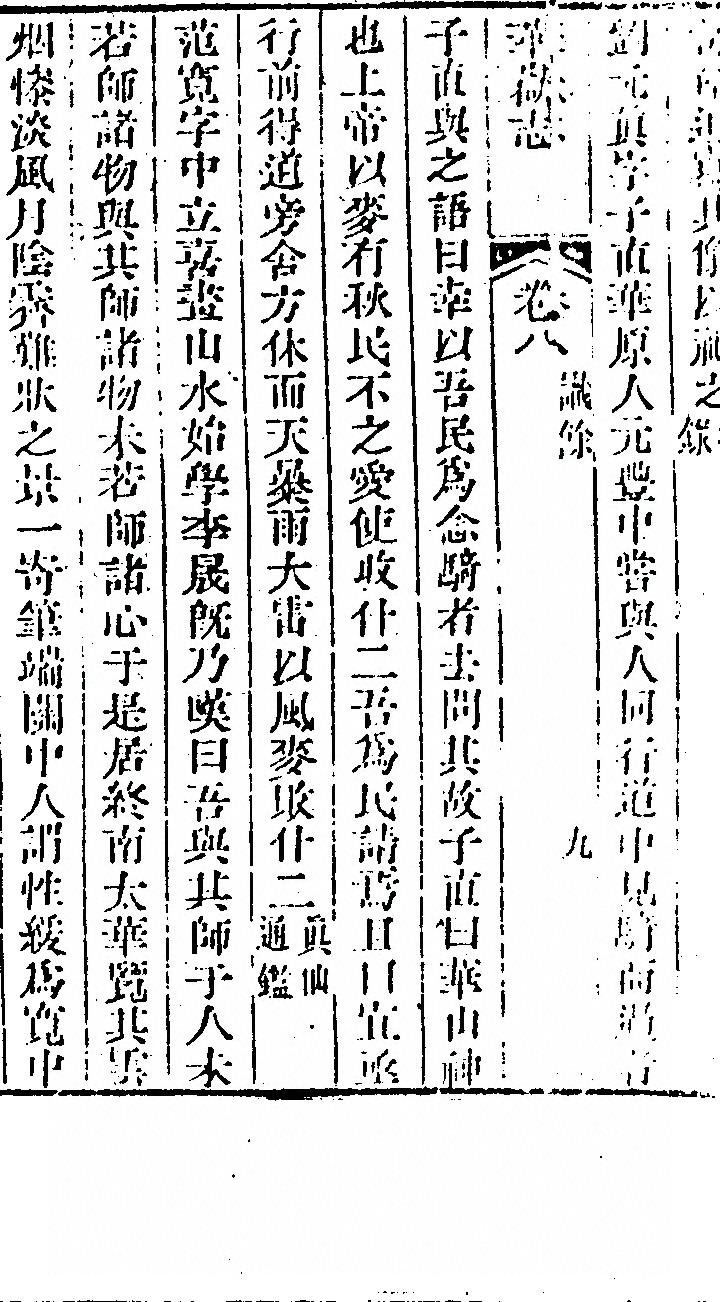 之 錄
劉元真字子直華原人元豐中嘗與人同行道中見騎而過行
華嶽志 卷八 識餘 九
子直與之語曰幸以吾民為念騎者去問其故子直曰華山神
也上帝以麥有秋民不之愛使收什二吾為民請焉且曰宜亟
行前得道旁舍方休而天暴雨大雷以風麥敗什二真仙通鑑
范寬字中立喜畫山水始學李晟旣乃嘆曰吾與其師于人未
若師諸物與其師諸物未若師諸心于是居終南太華覽其雲
烟慘淡風月陰霽難狀之景一寄筆端關中人謂性緩為寬中